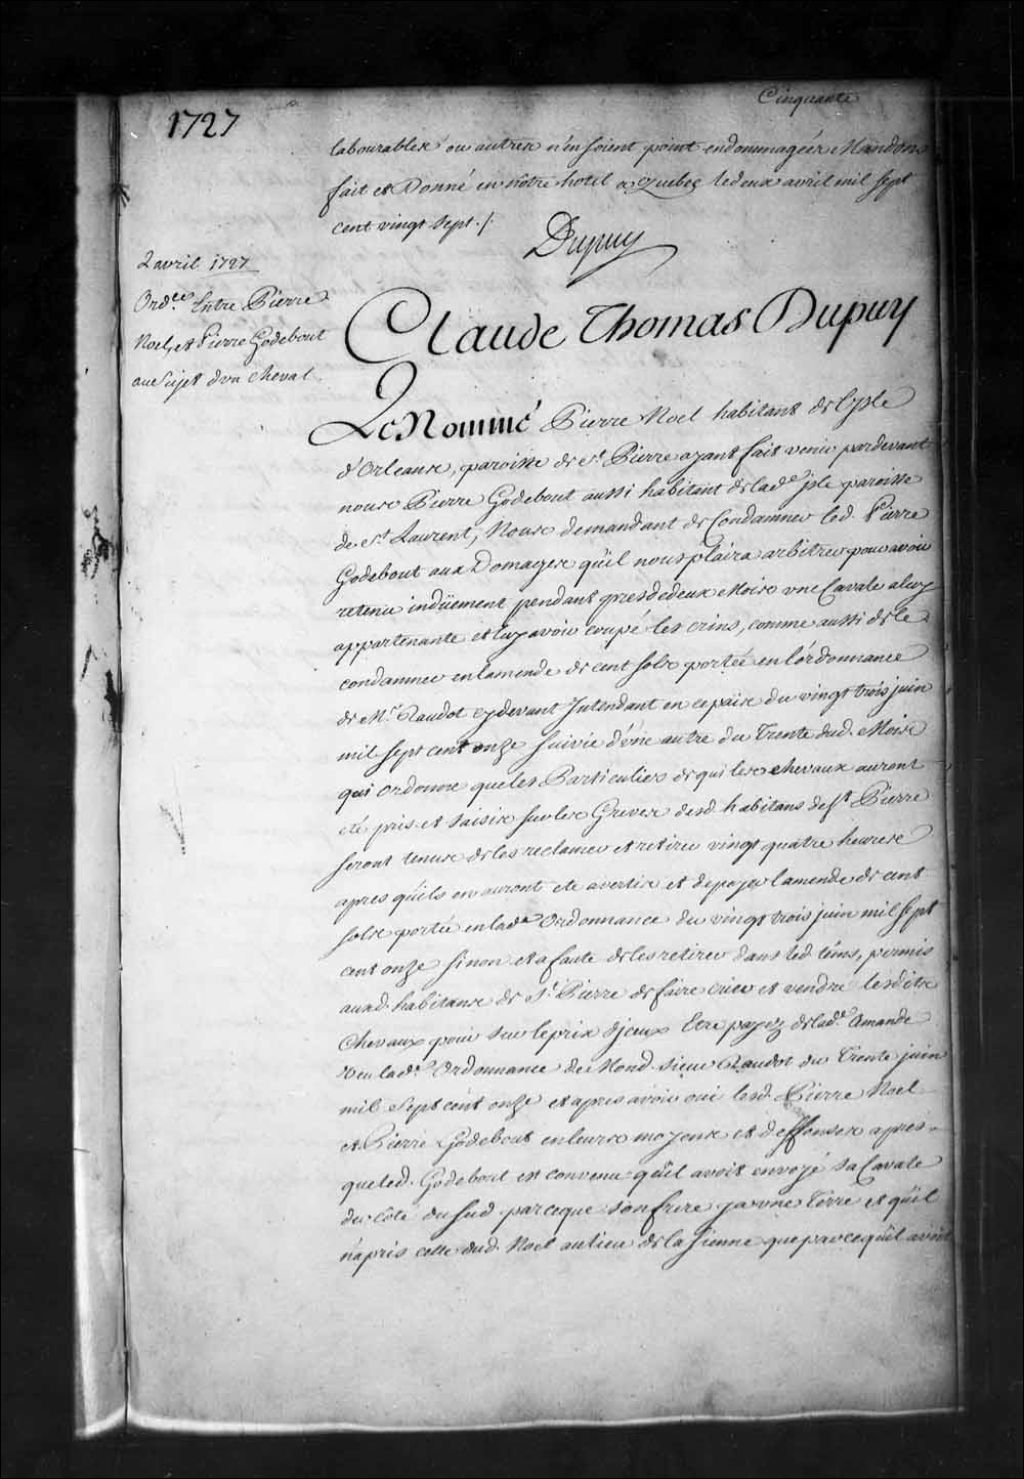 Cinquante
1727
labourables ou autres n'en soient point endommagées Mandons
fait et Donné en nôtre hotel a Quebec le deux avril mil sept
cent vingt sept ./.
Dupuy
2 avril 1727
Ord.ce Entre Pierre
Noel, et Pierre Godebout
au Sujet d'vn cheval
Claude Thomas Dupuy
Le Nommé Pierre Noel habitant de l'jsle
d'Orleans, paroisse de St. Pierre ayant fait venir pardevant
nous Pierre Godebout aussi habitant de lad.e jsle paroisse
de St. Laurent, Nous demandant de Condamner led. Pierre
Godebout aux Domages qu'il nous plaira arbitrer pour avoir
retenu indüement pendant près de deux Mois vne Cavale a luy
appartenante et luy avoir coupé les crins, comme aussi de le
condamner en lamende de cent sols portée en l'ordonnance
de Mr. Raudot cy devant Intendant en ce païs du vingt trois juin
mil sept cent onze suivie d'vne autre du Trente dud. Mois
qui ordonne que les Particuliers de qui les chevaux auront
eté pris et saisis sur les Greves desd. habitans de St. Pierre
seront tenus de les reclamer et retirer vingt quatre heures
apres qu'ils en auront eté avertis et de payer lamende de cent
sols portée en lad.e Ordonnance du vingt trois juin mil sept
cent onze sinon et a faute de les retirer dans led. têms, permis
auxd. habitans de St. Pierre de faire crier et vendre lesdits
Chevaux pour sur le prix d'jceux Etre payez de lad.e Amande
Veu lad.e Ordonnance de Mond. sieur Raudot du Trente juin
mil sept cent onze et apres avoir oui lesd. Pierre Noel
et Pierre Godebout en leurs moyens et deffenses apres
que led. Godebout est convenu qu'il avoit envoyé sa Cavale
du coté du sud parceque son frere y a vne Terre et qu'il
n'a pris celle dud. Noel au lieu de la sienne que parcequ'il avoit